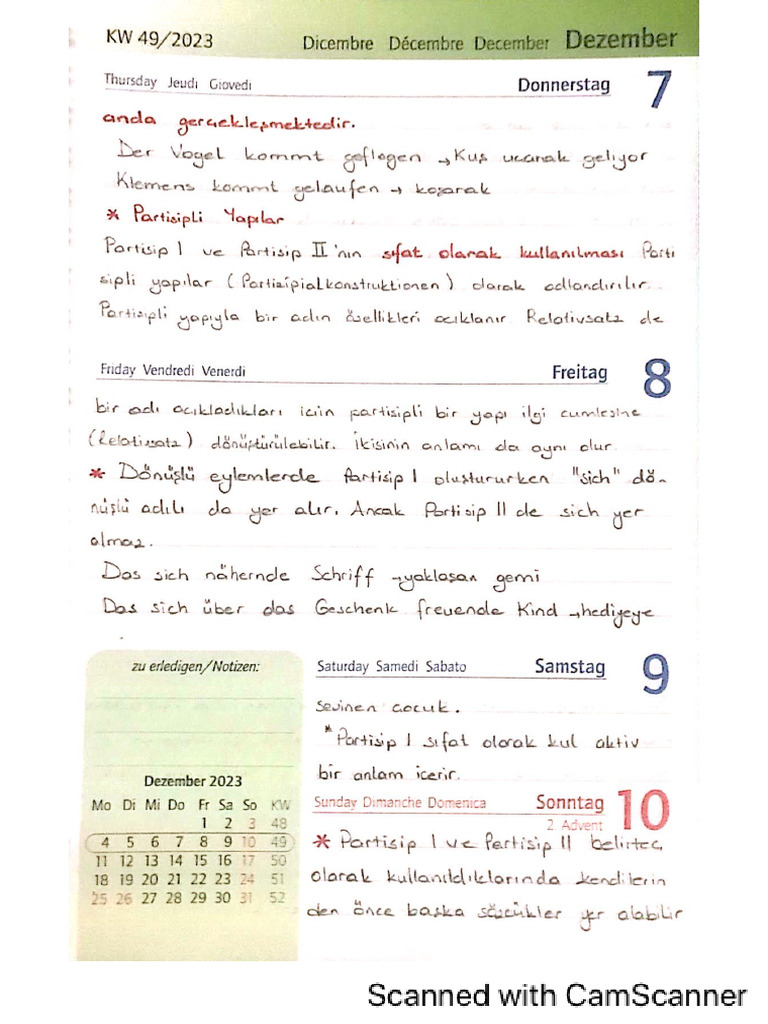 KW 49/2023 Dicembre Décembre December Dezember
Thursday Jeudi Giovedi Donnerstag 7
anda gerçekleşmektedir.
Der Vogel kommt geflogen → Kuş uçarak geliyor
Klemens kommt gelaufen → koşarak
* Partisipli Yapılar
Partisip I ve Partisip II'nin sıfat olarak kullanılması Parti
sipli yapılar (Partizipialkonstruktionen) olarak adlandırılır.
Partisipli yapıyla bir adın özellikleri açıklanır Relativsatz de
Friday Vendredi Venerdi Freitag 8
bir adı açıkladıkları için partisipli bir yapı ilgi cümlesine
(Relativsatz) dönüştürülebilir. ikisinin anlamı da aynı olur.
* Dönüşlü eylemlerde Partisip I oluştururken "sich" dö-
nüşlü adılı da yer alır. Ancak Partisip II de sich yer
almaz.
Das sich nähernde Schriff → yaklaşan gemi
Das sich über das Geschenk freuende Kind → hediyeye
zu erledigen/Notizen:
Saturday Samedi Sabato Samstag 9
sevinen çocuk.
* Partisip I sıfat olarak kul aktiv
bir anlam içerir.
Sunday Dimanche Domenica Sonntag 10
2. Advent
* Partisip I ve Partisip II belirteç
olarak kullanıldıklarında kendilerin
den önce başka sözcükler yer alabilir
Dezember 2023
Mo Di Mi Do Fr Sa So KW
1 2 3 48
4 5 6 7 8 9 10 49
11 12 13 14 15 16 17 50
18 19 20 21 22 23 24 51
25 26 27 28 29 30 31 52
Scanned with CamScanner